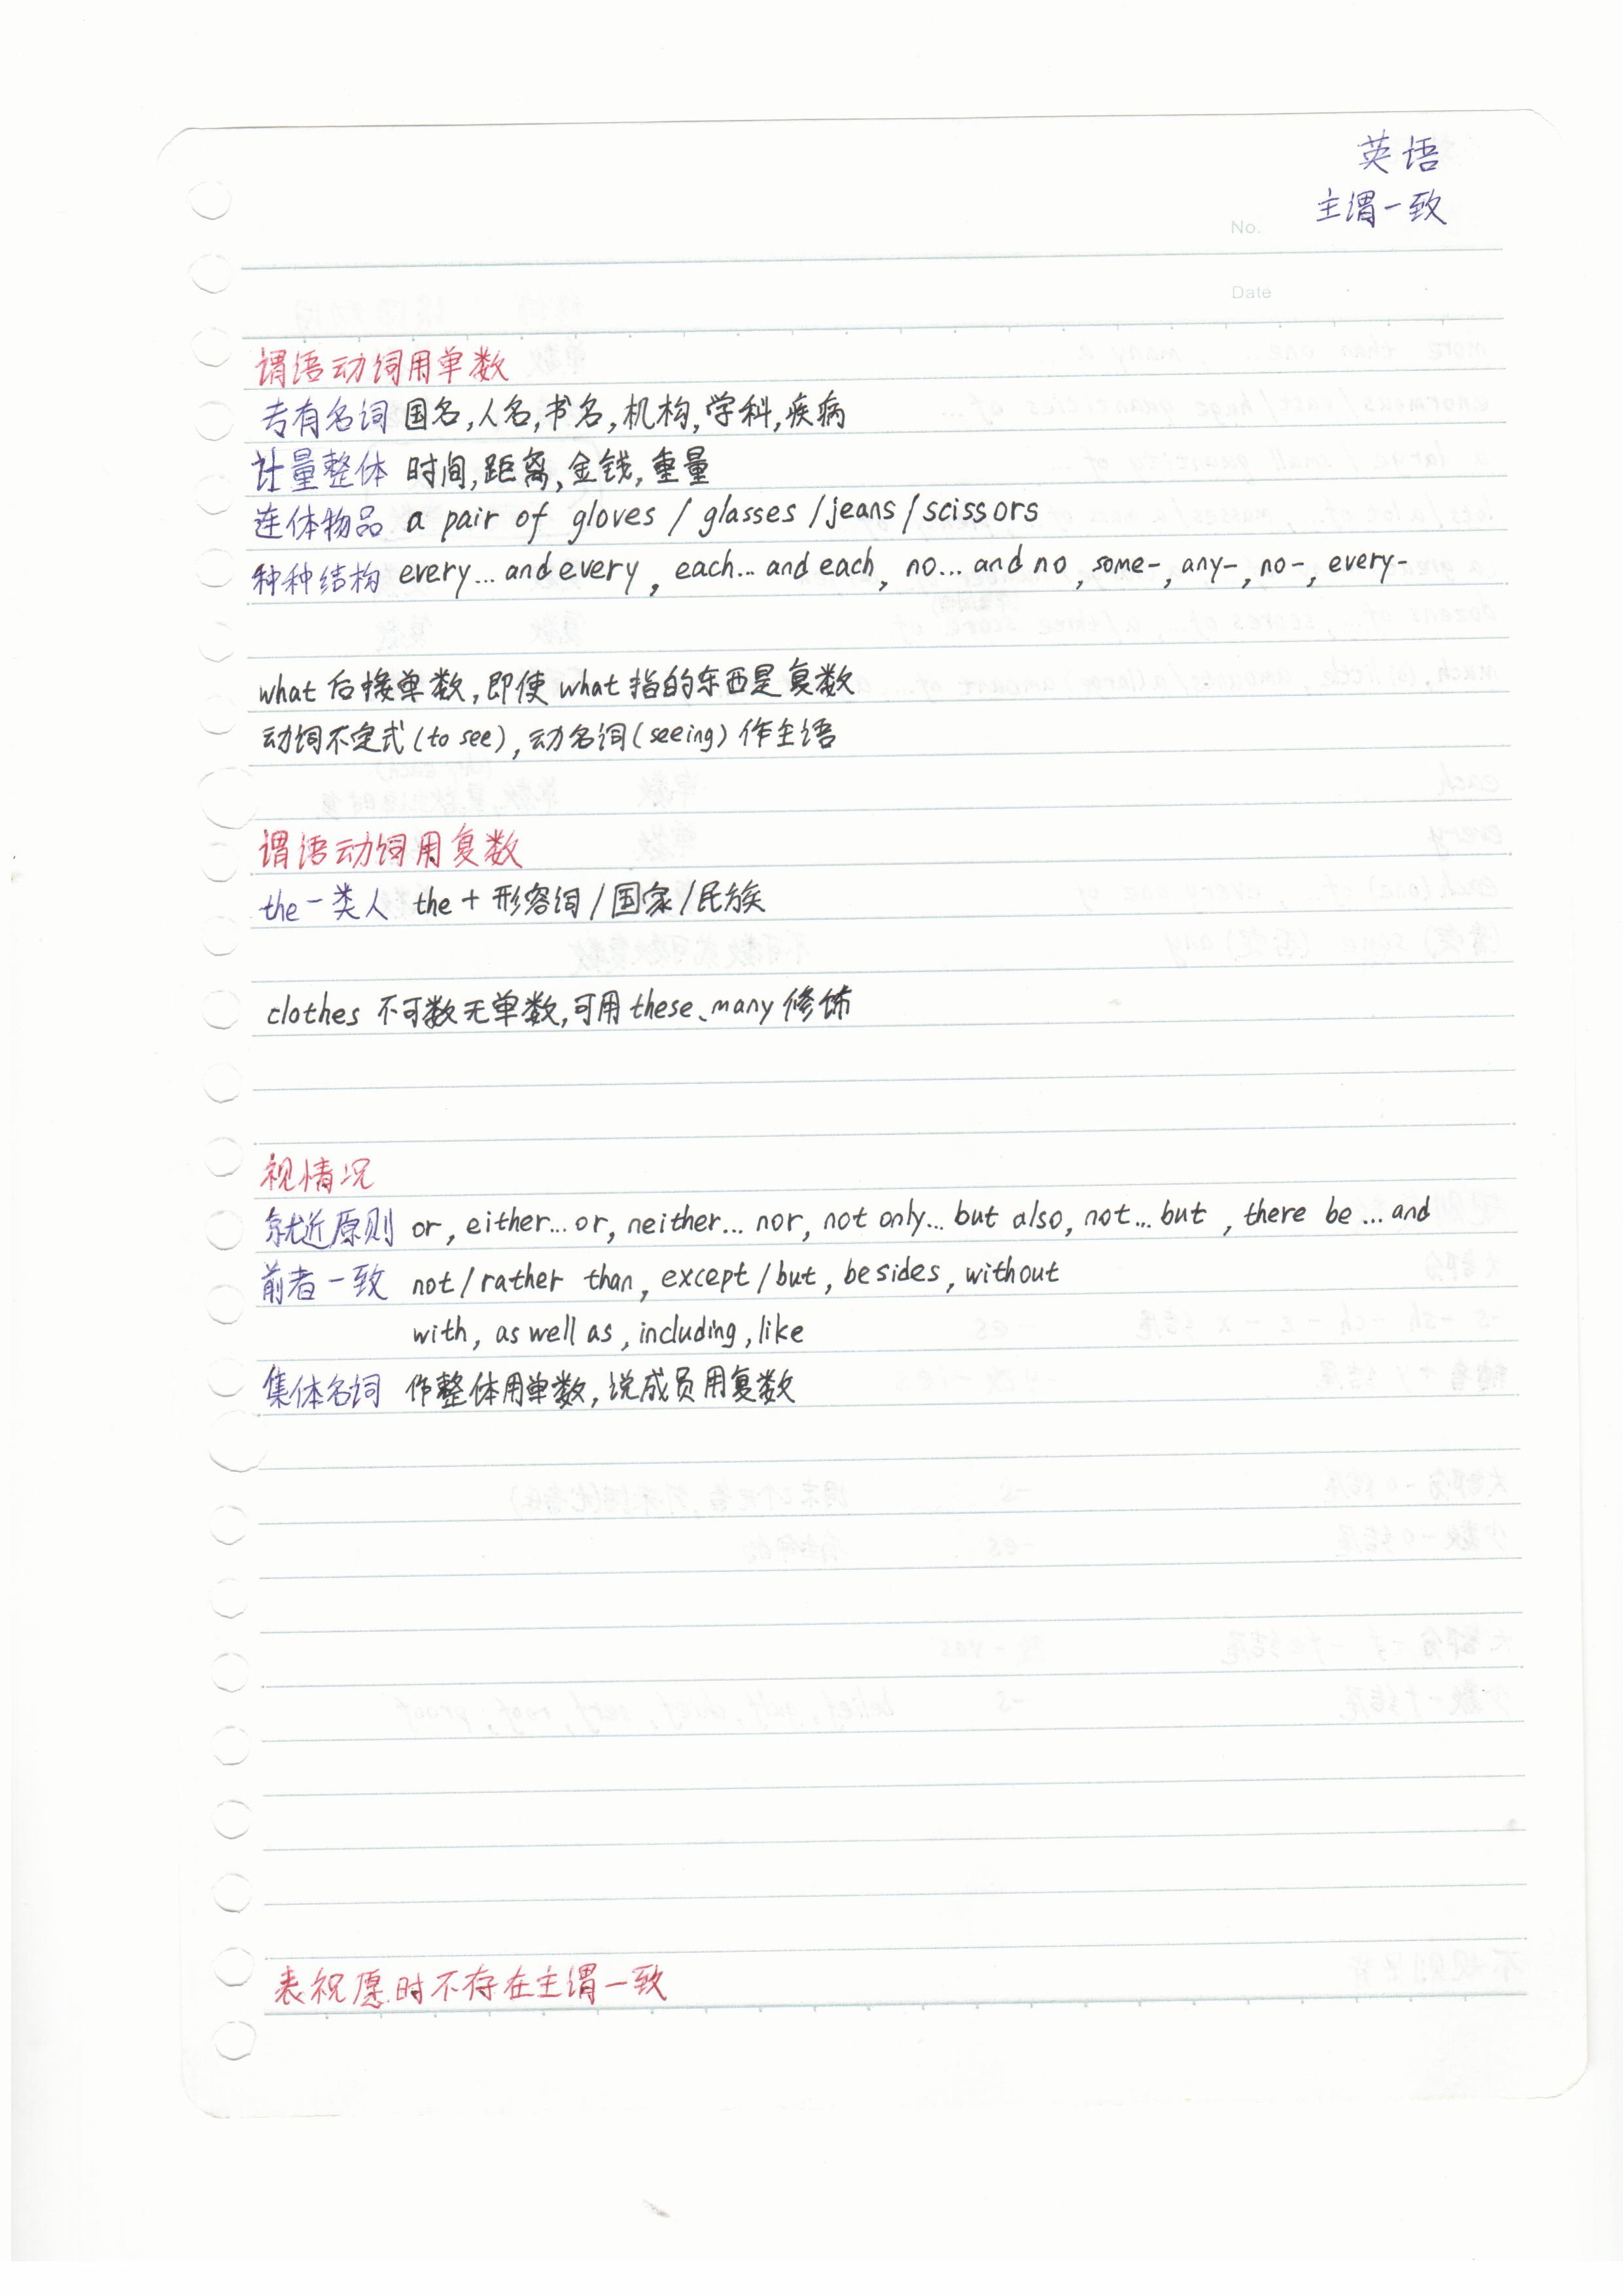 英语
主谓一致
No.
Date
谓语动词用单数
专有名词 国名,人名,书名,机构,学科,疾病
计量整体 时间,距离,金钱,重量
连体物品 a pair of gloves / glasses / jeans / scissors
种种结构 every... and every, each... and each, no... and no, some-, any-, no-, every-
what 后接单数,即使 what 指的东西是复数
动词不定式(to see),动名词(seeing)作主语
谓语动词用复数
the一类人 the + 形容词/国家/民族
clothes 不可数无单数,可用 these、many 修饰
视情况
就近原则 or, either... or, neither... nor, not only... but also, not... but , there be ... and
前者一致 not / rather than, except / but, besides, without
with, as well as, including, like
集体名词 作整体用单数,说成员用复数
表祝愿时不存在主谓一致